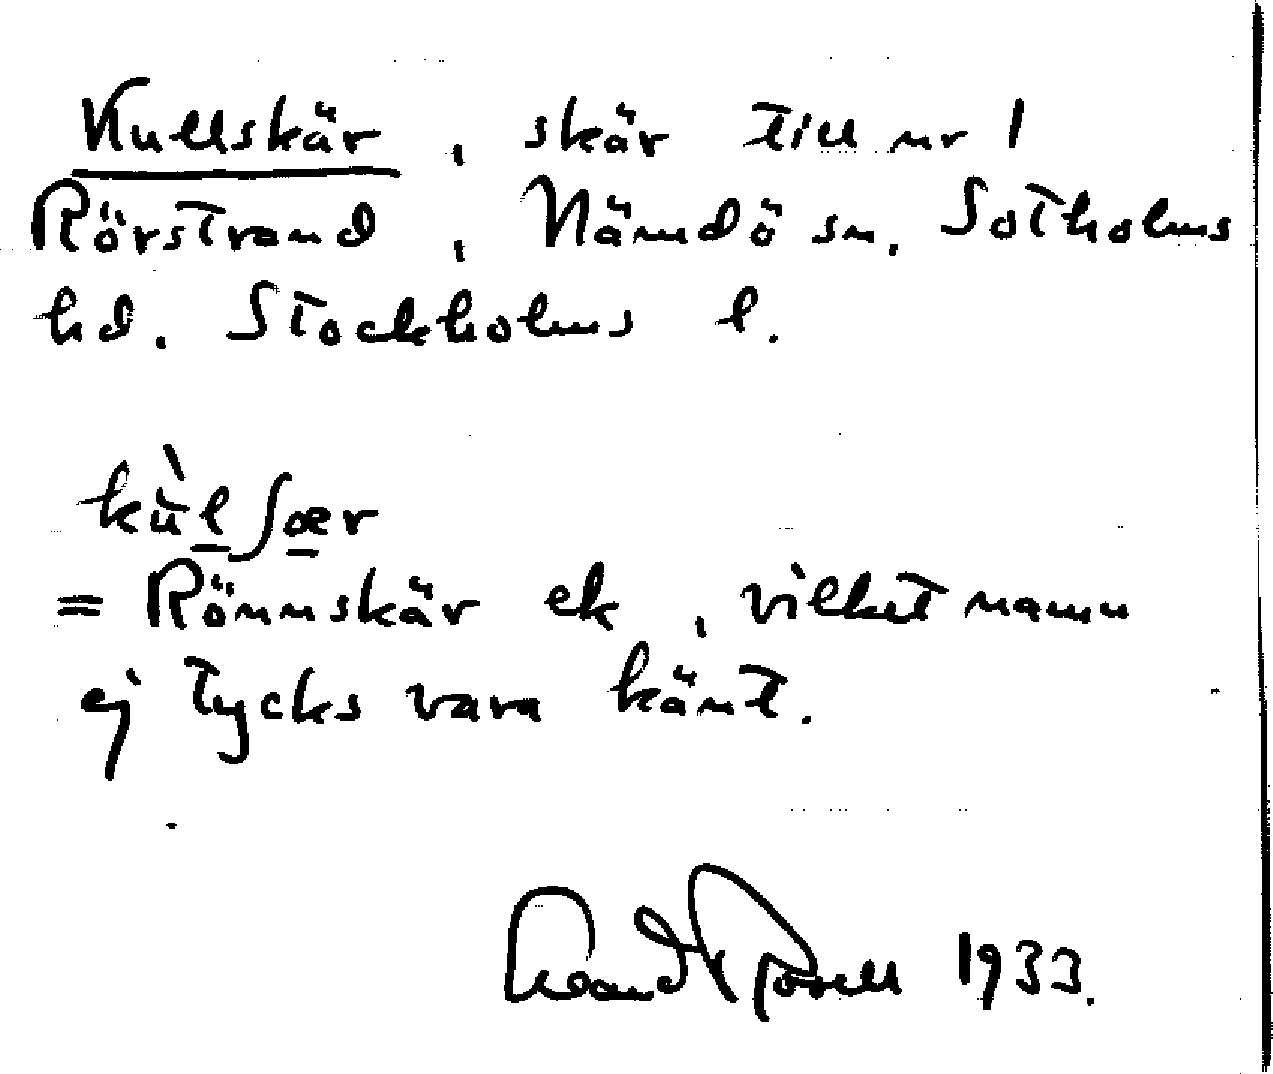 Kullskär, skär till nr 1
Rörstrand, Nämdö sn. Sotholms
hd. Stockholms l.
kùlʃær
= Rönnskär ek, vilket namn
ej tycks vara känt.
1933.